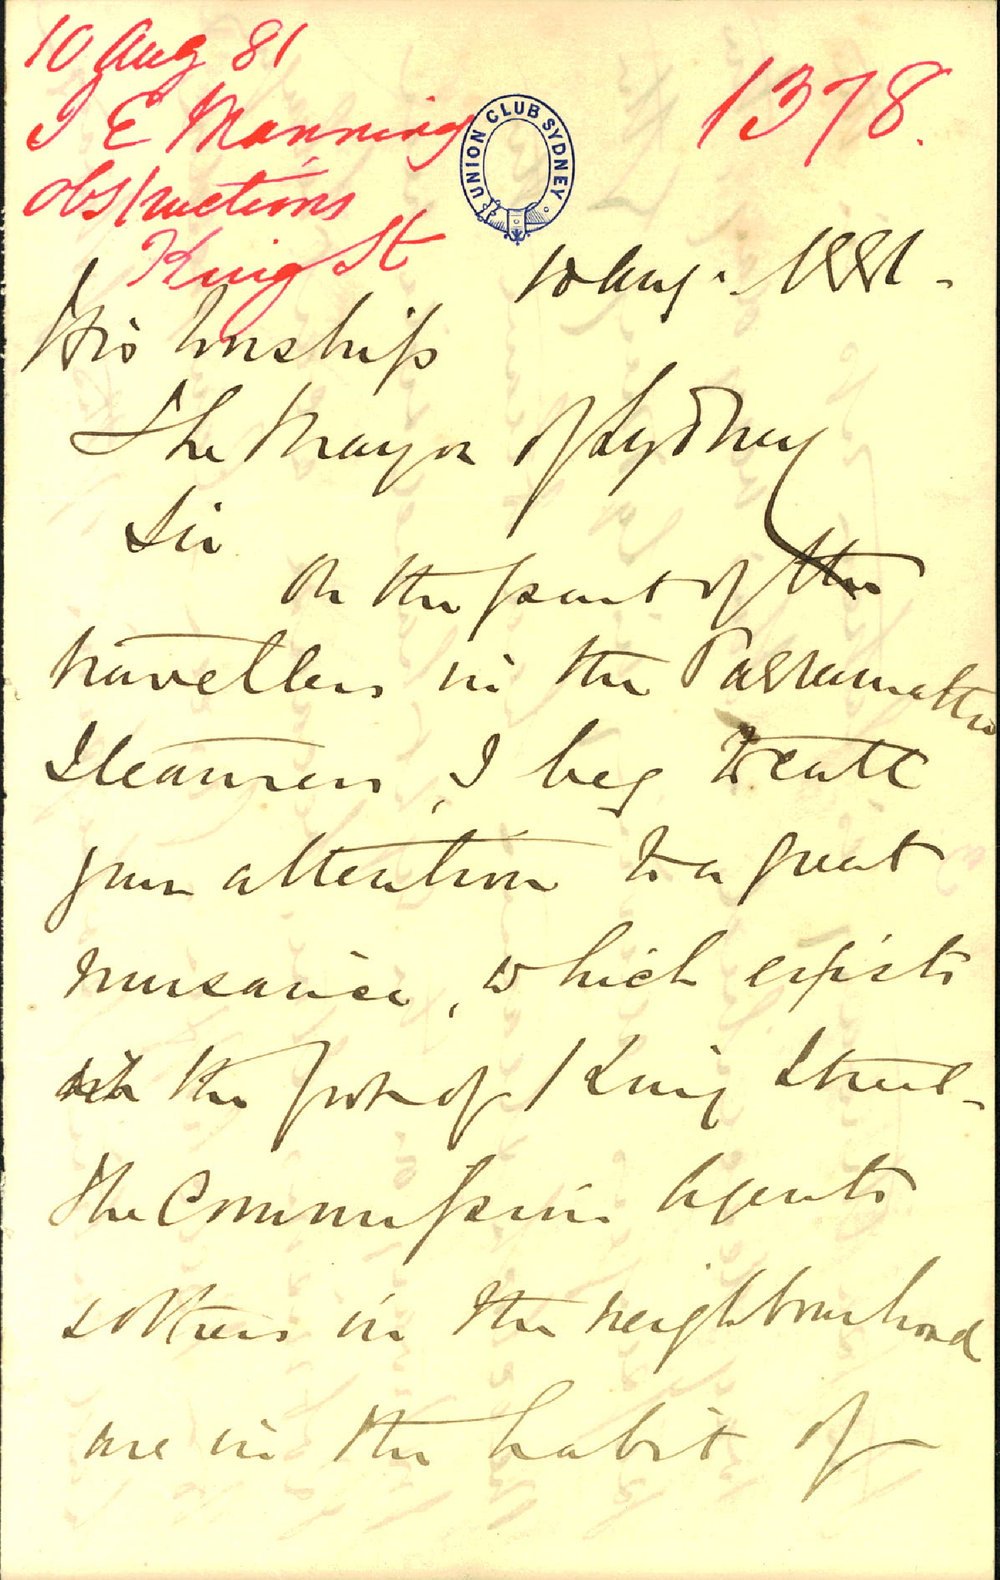 10 Aug 81
J E Manning
obstructions
King St
1378.
UNION CLUB SYDNEY
10 Aug. 1881 -
His Worship
The Mayor of Sydney
Sir
On the part of the
travellers in the Parramatta
Steamers, I beg to call
your attention to a great
nuisance, which exists
at the foot of King Street -
The Commission Agents
& others in the neighbourhood
are in the habit of